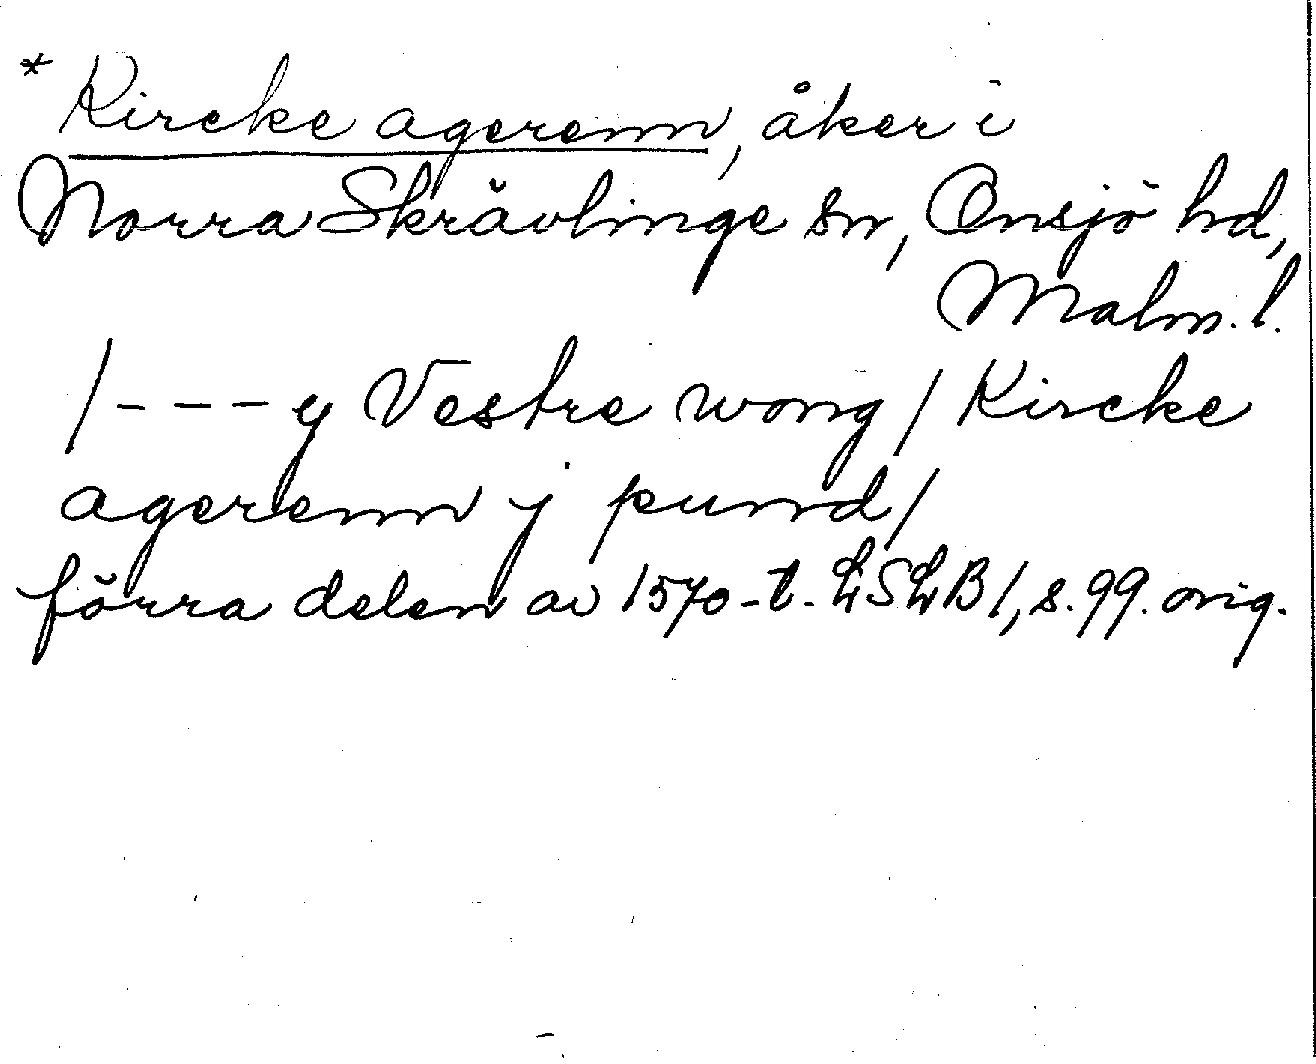 * Kircke agerenn, åker i
Norra Skrävlinge sn, Onsjö hd,
Malm. l.
/- - - y Vestre wong / Kircke
agerenn j pund /
förra delen av 1570-t. LSLB 1, s. 99. orig.